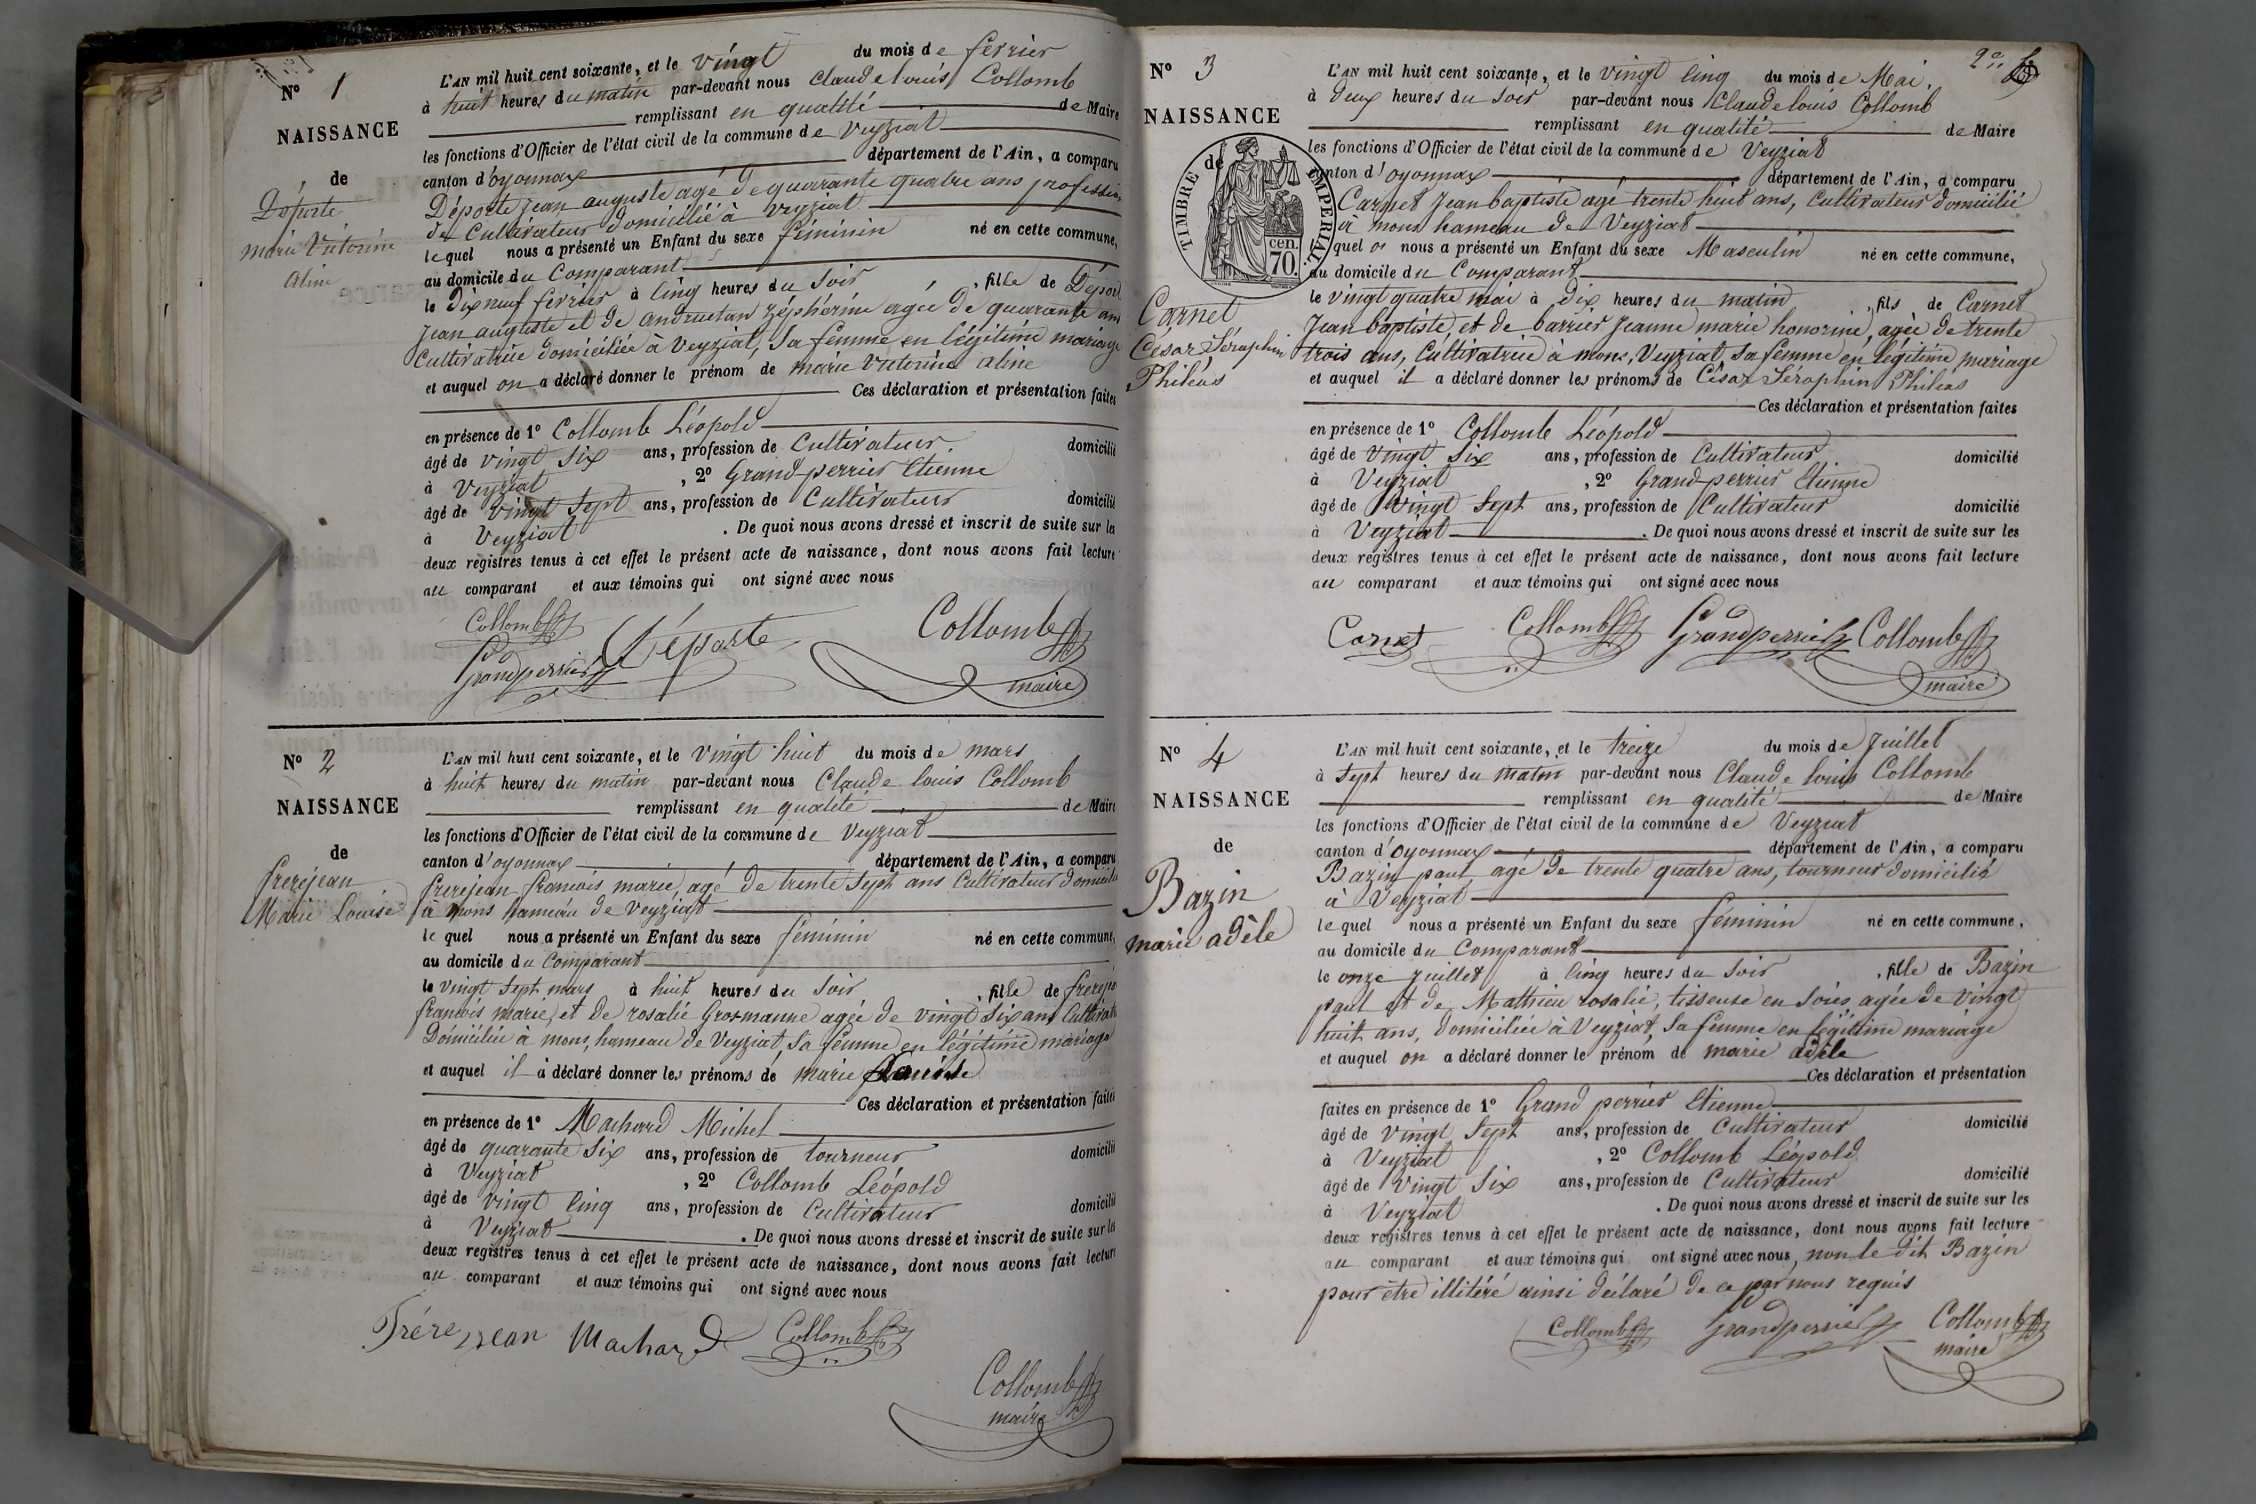 N° 1
NAISSANCE
de
Déporte
marie Victorine
Aline
L'AN mil huit cent soixante, et le vingt du mois de février
à huit heures du matin par-devant nous Claude louis Collomb
remplissant en qualité de Maire
les fonctions d'Officier de l'état civil de la commune de Veyziat
canton d'oyonnax département de l'Ain, a comparu
Déporte jean auguste agé de quarante quatre ans profession
de Cultivateur domicilié à Veyziat
lequel nous a présenté un Enfant du sexe féminin né en cette commune,
au domicile du Comparant
le Dix neuf février à Cinq heures du Soir, fille de Déporte
Jean auguste et de andruetan zéphérine agée de quarante ans
Cultivatrice domiciliée à Veyziat, Sa femme en légitime mariage
et auquel on a déclaré donner le prénom de marie Victorine aline
Ces déclaration et présentation faites
en présence de 1° Collomb Léopold
âgé de vingt Six ans, profession de Cultivateur domicilié
à Veyziat, 2° Grand-perrier Etienne
âgé de vingt Sept ans, profession de Cultivateur domicilié
à Veyziat. De quoi nous avons dressé et inscrit de suite sur les
deux registres tenus à cet effet le présent acte de naissance, dont nous avons fait lecture
au comparant et aux témoins qui ont signé avec nous
Collomb Déporte Collomb
Grandperrier maire
N° 2
NAISSANCE
de
frerejean
Marie Louise
L'AN mil huit cent soixante, et le vingt huit du mois de mars
à huit heures du matin par-devant nous Claude louis Collomb
remplissant en qualité de Maire
les fonctions d'Officier de l'état civil de la commune de Veyziat
canton d'oyonnax département de l'Ain, a comparu
frerejean francois marie, agé de trente Sept ans Cultivateur domicilié
à mons hameau de Veyziat
le quel nous a présenté un Enfant du sexe féminin né en cette commune,
au domicile du Comparant
le vingt Sept mars à huit heures du Soir, fille de frereje
francois marie, et de rosalie Grosmanne agée de vingt Six ans Cultivatr
Domiciliée à mons, hameau de Veyziat, Sa femme en légitime mariage
et auquel il a déclaré donner les prénoms de marie Louise
Ces déclaration et présentation faites
en présence de 1° Machard Michel
âgé de quarante Six ans, profession de tourneur domicilié
à Veyziat, 2° Collomb Léopold
âgé de vingt Cinq ans, profession de Cultivateur domicilié
à Veyziat. De quoi nous avons dressé et inscrit de suite sur les
deux registres tenus à cet effet le présent acte de naissance, dont nous avons fait lecture
au comparant et aux témoins qui ont signé avec nous
Frérejean Machard Collomb
Collomb
maire
2°
N° 3
NAISSANCE
de
TIMBRE IMPERIAL
cen.
70.
Carnet
César Séraphin
Philéas
L'AN mil huit cent soixante, et le vingt Cinq du mois de Mai.
à Deux heures du Soir par-devant nous Claude louis Collomb
remplissant en qualité de Maire
les fonctions d'Officier de l'état civil de la commune de Veyziat
canton d'oyonnax département de l'Ain, a comparu
Carnet Jean baptiste agé trente huit ans, Cultivateur domicilié
à mons hameau de Veyziat
quel nous a présenté un Enfant du sexe Masculin né en cette commune,
au domicile du Comparant
le vingt quatre mai à Dix heures du matin, fils de Carnet
Jean baptiste, et de barrier Jeanne marie honorine, agée de trente
trois ans, Cultivatrice à mons, Veyziat, Sa femme en légitime mariage
et auquel il a déclaré donner les prénoms de César Séraphin Philéas
Ces déclaration et présentation faites
en présence de 1° Collomb Léopold
âgé de vingt Six ans, profession de Cultivateur domicilié
à Veyziat, 2° Grand-perrier Etienne
âgé de vingt Sept ans, profession de Cultivateur domicilié
à Veyziat. De quoi nous avons dressé et inscrit de suite sur les
deux registres tenus à cet effet le présent acte de naissance, dont nous avons fait lecture
au comparant et aux témoins qui ont signé avec nous
Carnet Collomb Grandperrier Collomb
maire
N° 4
NAISSANCE
de
Bazin
marie adèle
L'AN mil huit cent soixante, et le treize du mois de Juillet
à Sept heures du matin par-devant nous Claude louis Collomb
remplissant en qualité de Maire
les fonctions d'Officier de l'état civil de la commune de Veyziat
canton d'oyonnax département de l'Ain, a comparu
Bazin paul agé de trente quatre ans, tourneur domicilié
à Veyziat
lequel nous a présenté un Enfant du sexe féminin né en cette commune,
au domicile du Comparant
le onze Juillet à Cinq heures du Soir, fille de Bazin
paul et de Mathieu rosalie, tisseuse en Soies, agée de vingt
huit ans, Domiciliée à Veyziat, Sa femme en légitime mariage
et auquel on a déclaré donner le prénom de marie adèle
Ces déclaration et présentation
faites en présence de 1° Grand perrier Etienne
âgé de vingt Sept ans, profession de Cultivateur domicilié
à Veyziat, 2° Collomb Léopold
âgé de vingt Six ans, profession de Cultivateur domicilié
à Veyziat. De quoi nous avons dressé et inscrit de suite sur les
deux registres tenus à cet effet le présent acte de naissance, dont nous avons fait lecture
au comparant et aux témoins qui ont signé avec nous, non le dit Bazin
pour être illitéré ainsi déclaré de ce par nous requis
Collomb Grandperrier Collomb
maire